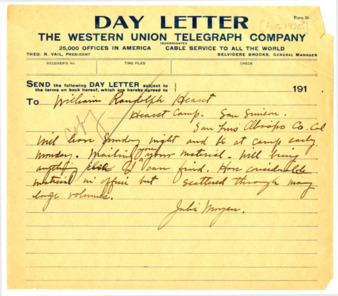 DAY LETTER
Form 2589
THE WESTERN UNION TELEGRAPH COMPANY
INCORPORATED
25,000 OFFICES IN AMERICA CABLE SERVICE TO ALL THE WORLD
THEO. N. VAIL, PRESIDENT BELVIDERE BROOKS, GENERAL MANAGER
RECEIVER'S No. TIME FILED CHECK
SEND the following DAY LETTER subject to
the terms on back hereof, which are hereby agreed to
191
To William Randolph Hearst
Hearst Camp. San Simeon
San Luis Obispo Co. Cal
Will leave Sunday night and be at camp early
Monday. Mailing you your material. Will bring
anything else I can find. Have considerable
material in office but scattered through many
large volumes.
Julia Morgan